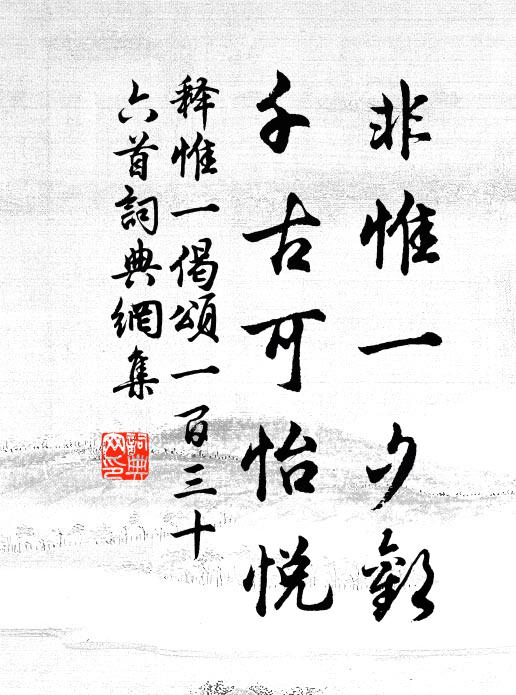 非惟一夕歡
千古可怡悦
释惟一偈頌一百三十
六首詞典網集
詞典
网印